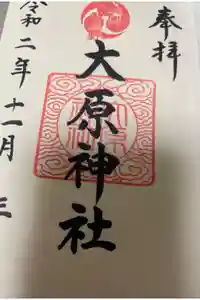 奉拝
大原神社
令和二年十一月三